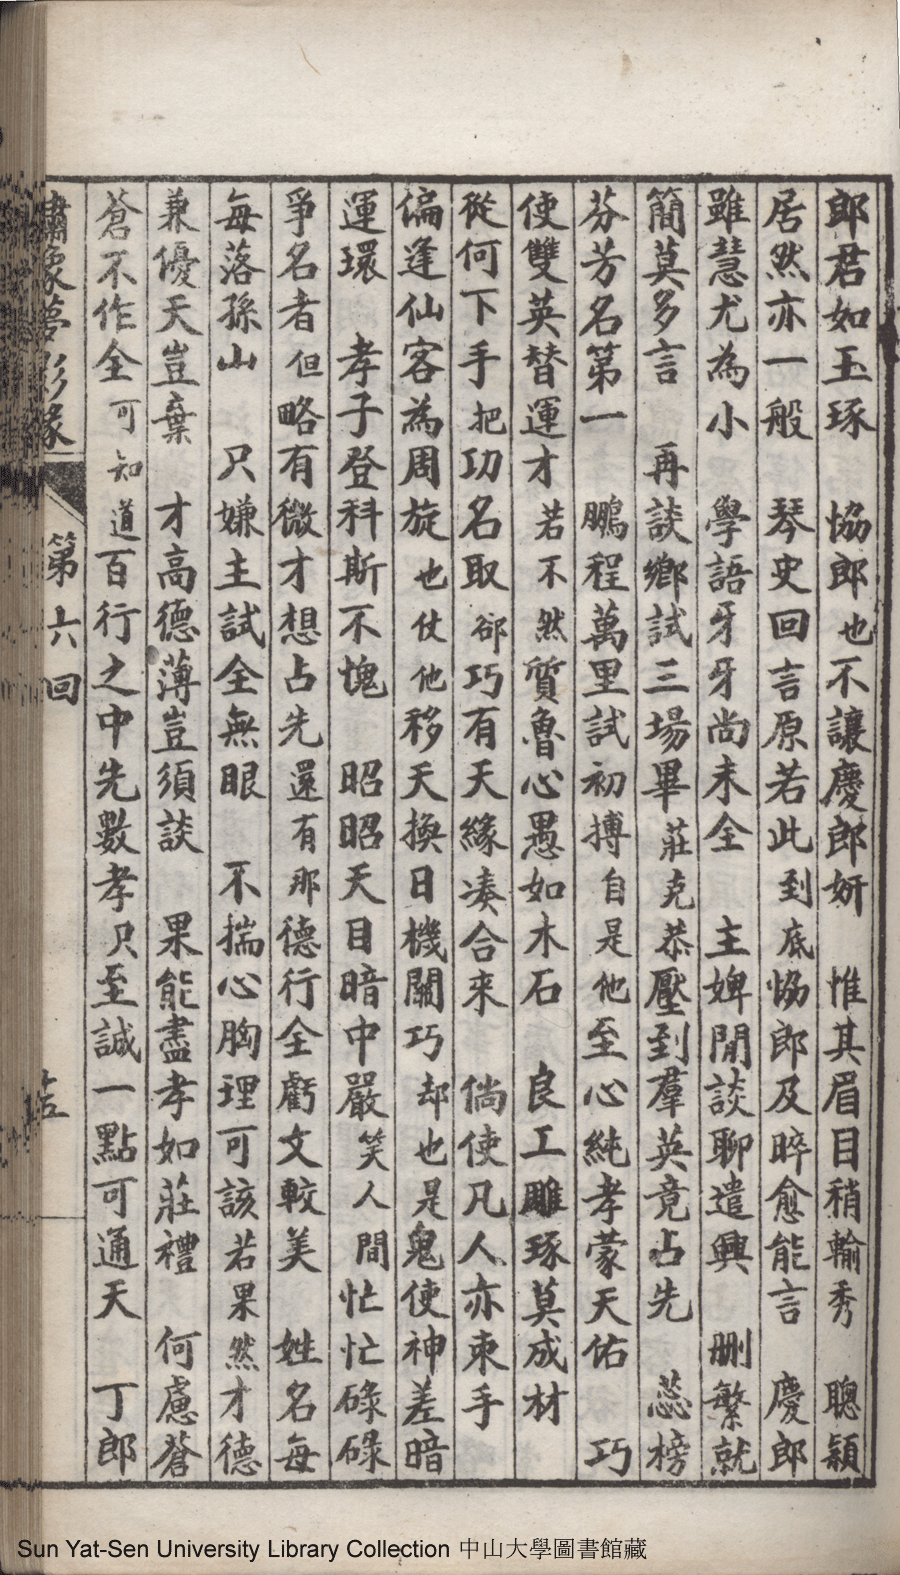 郎君如玉琢　協郎也不讓慶郎妍　惟其眉目稍輸秀　聰穎
居然亦一般　琴史回言原若此到底協郎及晬愈能言　慶郎
雖慧尤為小　學語牙牙尚未全　主婢閒談聊遣興　刪繁就
簡莫多言　再談鄉試三場畢莊克恭壓到羣英竟占先　蕊榜
芬芳名第一　鵬程萬里試初搏自是他至心純孝蒙天佑　巧
使雙英替運才若不然質魯心愚如木石　良工雕琢莫成材
從何下手把功名取卻巧有天緣凑合來　倘使凡人亦束手
偏逢仙客為周旋也仗他移天換日機關巧却也是鬼使神差暗
運環　孝子登科斯不愧　昭昭天目暗中嚴笑人間忙忙碌碌
爭名者但略有微才想占先還有那德行全虧文較美　姓名每
每落孫山　只嫌主試全無眼　不揣心胸理可該若果然才德
兼優天豈棄　才高德薄豈須談　果能盡孝如莊禮　何慮蒼
蒼不作全可知道百行之中先數孝只至誠一點可通天　丁郎
第六回
Sun Yat-Sen University Library Collection 中山大學圖書館藏